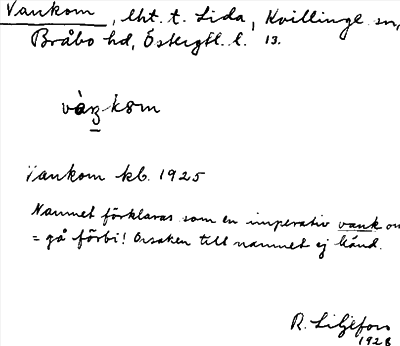 Vankom, lht. t. Lida, Kvillinge sn,
Bråbo hd, Östergtl. l. 13.
Vankom kb. 1925
Namnet förklaras som en imperativ vank om
= gå förbi! Orsaken till namnet ej känd.
R. Liljefors
1928